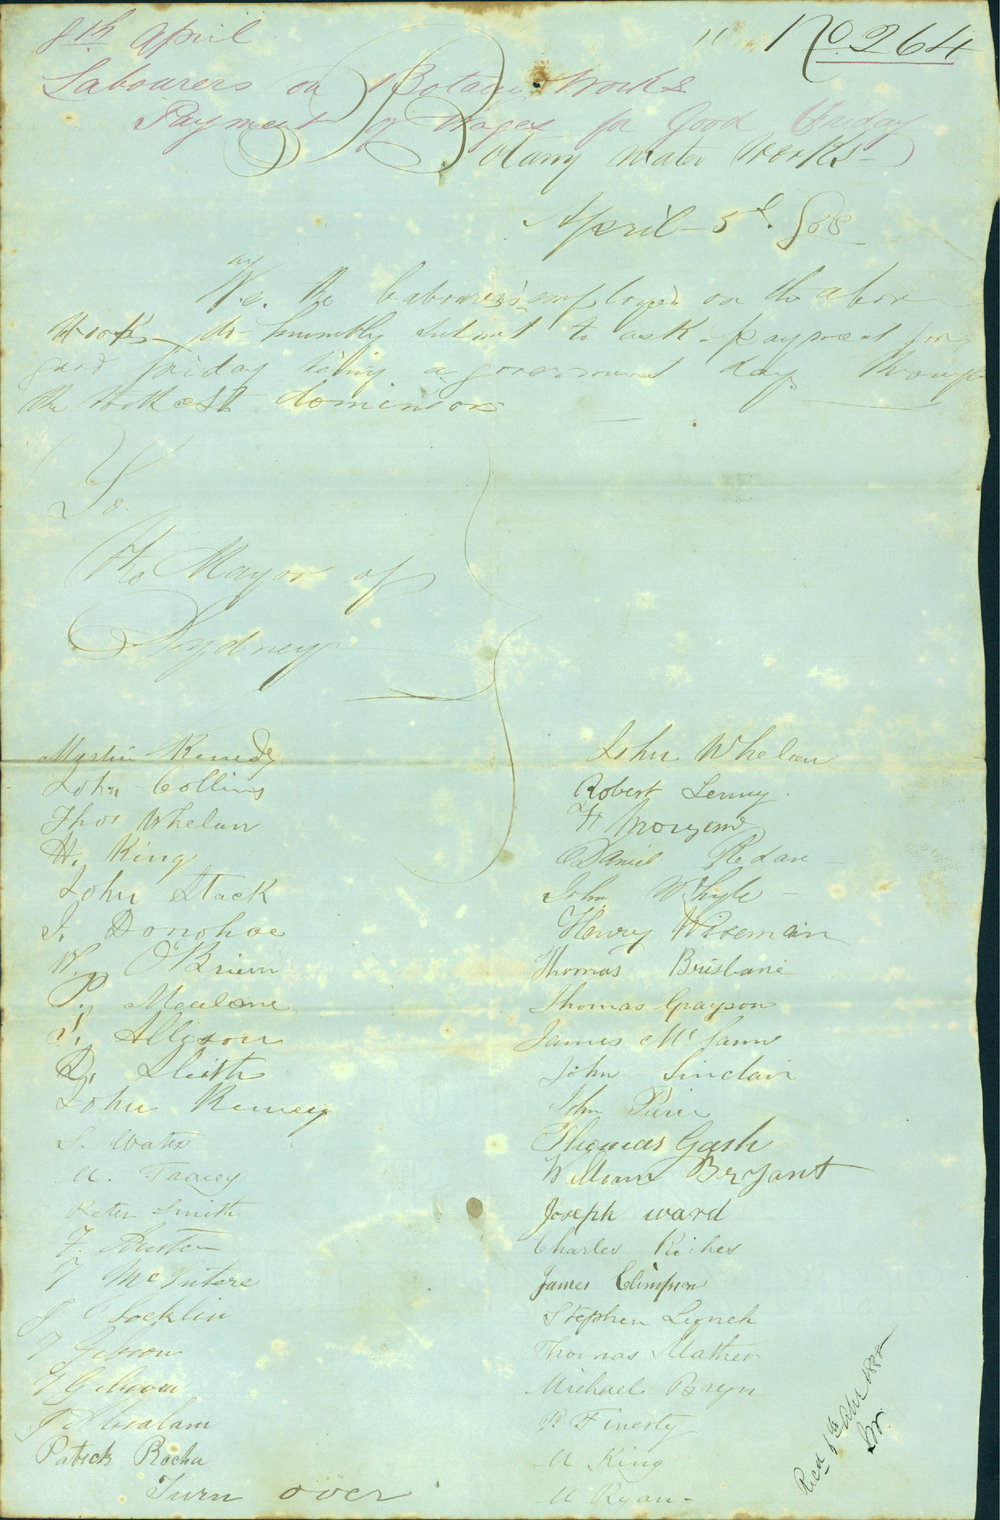 8th April
No. 264
Labourers on Botany Works
Payment of Wages for Good Friday
Botany Water Works
April 5th 58
We the Labourers employed on the abov
Works do humbly submit to ask payment for
good friday being a government day through
the dominion
To
the Mayor of
Sydney
Martin Kenedy
John Collins
Thos Whelan
H. King
John Stack
J. Donohoe
W. O'Brien
P. Malone
T. Allison
D. Sleith
John Kenney
S. Water
M. Tracey
Peter Smith
F.
T McIntere
J
T Gibson
T Gibson
J
Patrick Rocha
Turn over
John Whelan
Robert Lenny
Daniel Redan
John Whyle
Henry Wiseman
Thomas Brisbane
Thomas Grayson
James McCann
John Sinclair
John
Thomas Gash
William Bryant
Joseph ward
Charles
James Climpson
Stephen Lynch
Thomas Mather
Michael Bryn
P Finerty
M King
M Ryan
Recd 6th Apl 1858